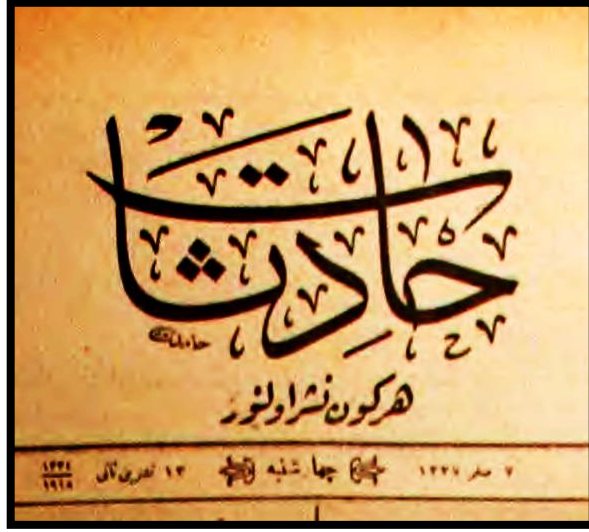 حادثات
هر كون نشر اولنور
٧ صفر ١٣٣٧ چهارشنبه ١٣ تشرين ثانى ١٣٣٤ ١٩١٨